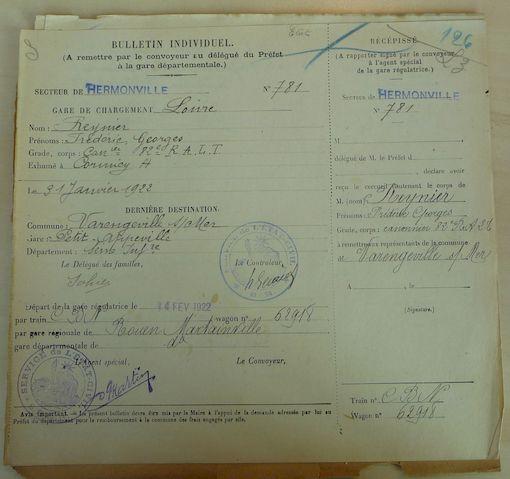 BULLETIN INDIVIDUEL.
(A remettre par le convoyeur au délégué du Préfet
à la gare départementale.)
SECTEUR DE HERMONVILLE N° 781
GARE DE CHARGEMENT Loivre
Nom : Reynier
Prénoms : Frédéric Georges
Grade, corps : Can 82e R.A.L.T.
Exhumé à Cormicy A
Le 31 Janvier 1922
DERNIÈRE DESTINATION.
Commune : Varengeville s/Mer
Gare : Petit Appeville
Département : Seine Infre
Le Délégué des familles,
Le Controleur,
Départ de la gare régulatrice le 14 FEV 1922
par train C B N wagon n° 62918
par gare régionale de Rouen Martainville
gare départementale de do
L'Agent spécial,
Le Convoyeur,
SERVICE de L'ETAT-CIVIL
Martin
Avis important. — Le présent bulletin devra être mis par le Maire à l'appui de la demande adressée par lui au
Préfet du département pour le remboursement à la commune des frais engagés par elle.
126
RÉCÉPISSÉ
(A rapporter signé par le convoyeur
à l'agent spécial
de la gare régulatrice.)
Secteur de HERMONVILLE
N° 781
M
délégué de M. le Préfet d
déclare avoir
reçu le cercueil contenant le corps de
M. (nom) Reynier
Prénoms : Frédéric Georges
Grade, corps : canonnier 82e
à remettre aux représentants de la commune
de Varengeville s/ Mer
A , le
(Signature.)
Train n° C B N
Wagon n° 62918